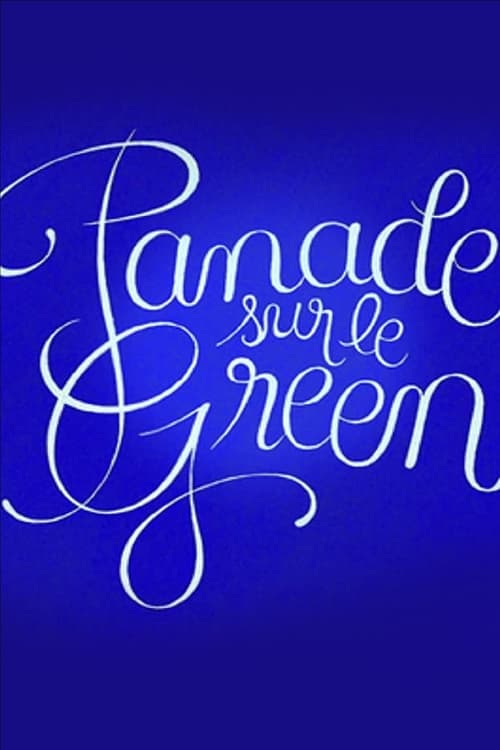 Panade
sur le
Green